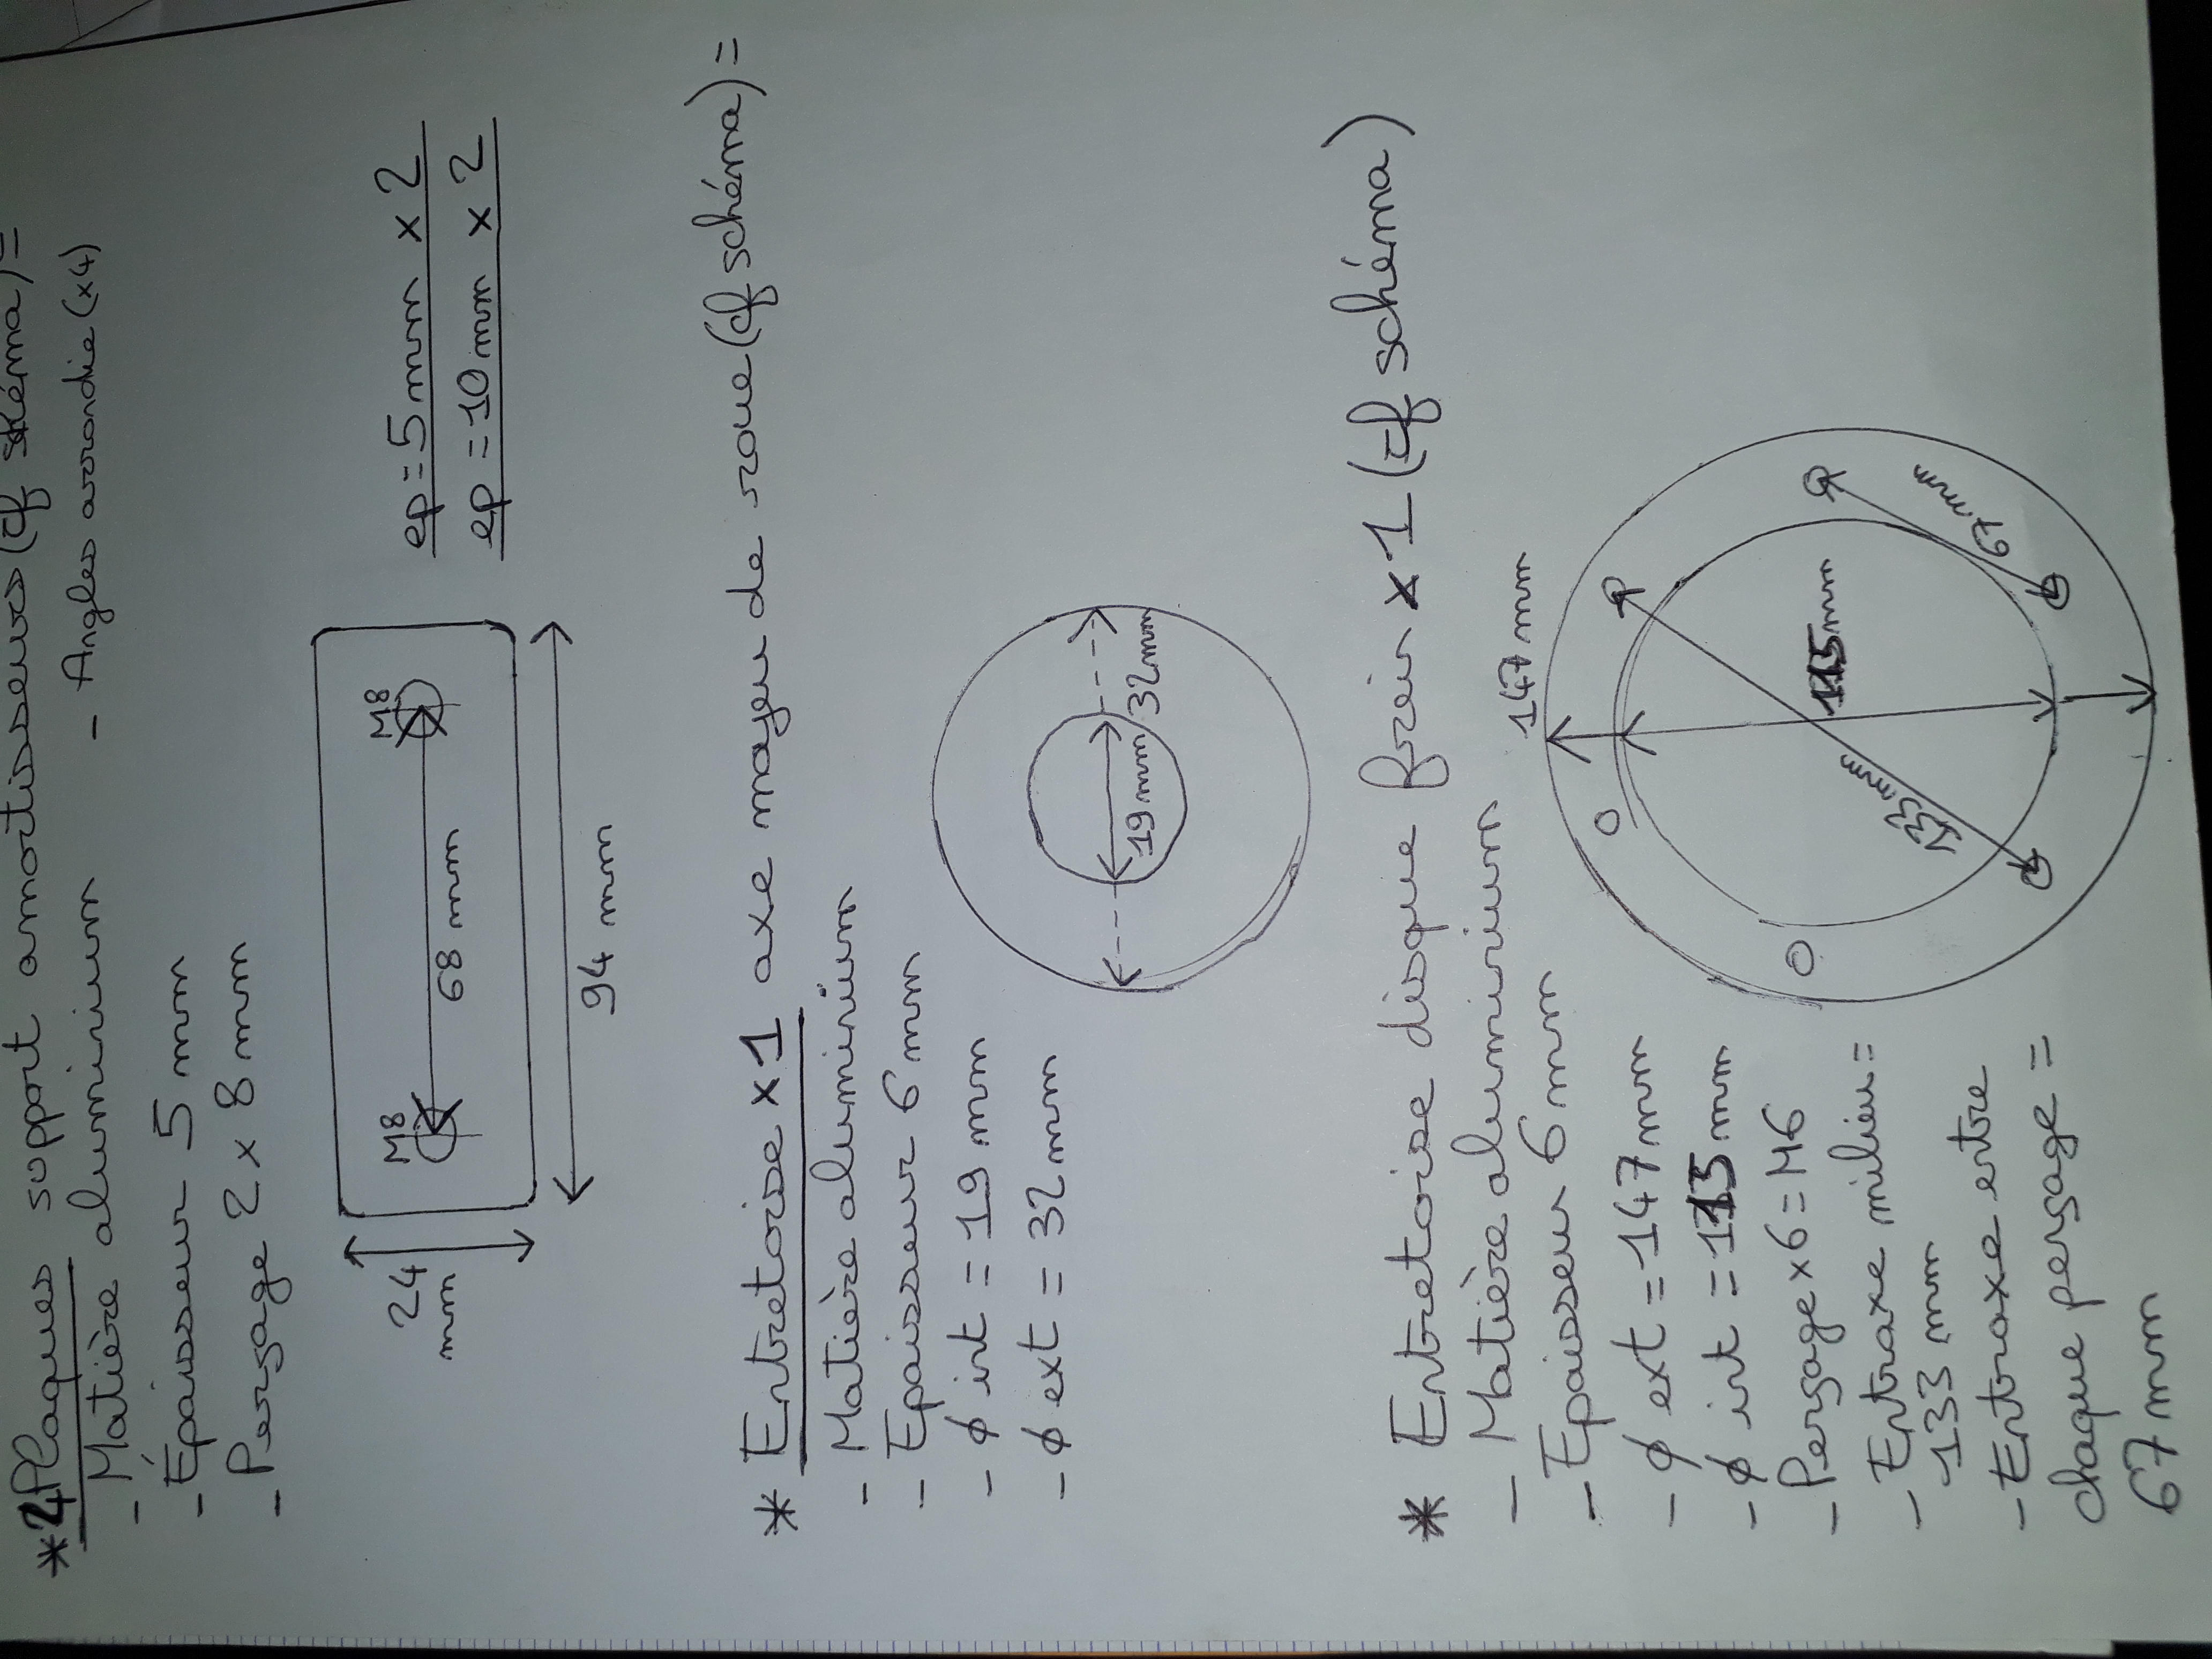 *4 Plaques support amortisseurs (cf schéma)=
- Matière aluminium - Angles arrondie (x4)
- Épaisseur 5 mm
- Perçage 2 x 8 mm
ep=5mm x 2
ep=10mm x 2
M8 M8
68 mm
24
mm
94 mm
* Entretoise x1 axe moyeu de roue (cf schéma)=
- Matière aluminium
- Epaisseur 6 mm
- ϕ int = 19 mm
- ϕ ext = 32mm
19mm 32mm
* Entretoise disque frein x1 (cf schéma)
- Matière aluminium
- Epaisseur 6mm
- ϕ ext = 147mm
- ϕ int = 115mm
- Perçage x6 = M6
- Entraxe milieu =
133 mm
- Entraxe entre
chaque perçage =
67 mm
147mm
115mm
133mm
67mm